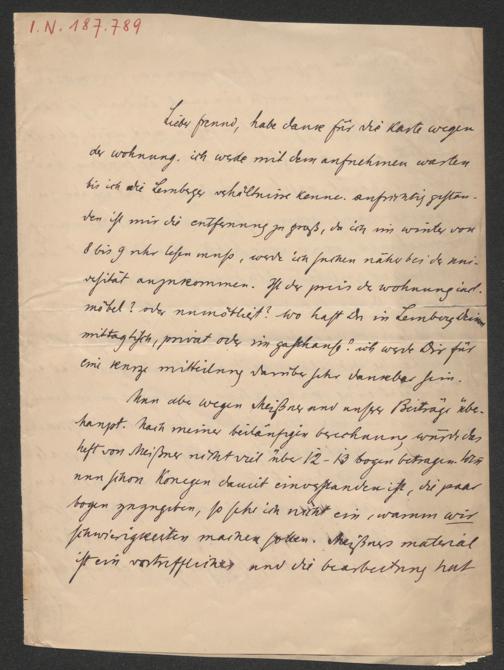 I.N. 187.789
Lieber freund, habe dank für die karte wegen
der wohnung. ich werde mit dem aufnehmen warten
bis ich die Lemberger verhältnisse kenne. aufrichtig gestan-
den ist mir die entfernung zu groß, da ich im winter von
8 bis 9 uhr lesen muss, werde ich suchen näher bei der uni-
versität anzukommen. Ist der preis der wohnung incl.
möbel? oder unmöbliert? wo hast Du in Lemberg Deinen
mittagtisch, privat oder im gasthaus? ich werde Dir für
eine kurze mitteilung darüber sehr dankbar sein.
Nun aber wegen Meißner und unsrer Beiträge übe-
haupt. Nach meiner beiläufigen berechnung würde das
heft von Meißner nicht viel über 12-13 bogen betragen.
nun schon Konegen damit einverstanden ist, die paar
bogen zuzugeben, so sehe ich nicht ein, warum wir
schwierigkeiten machen sollen. Meißners material
ist ein vortreffliches und die bearbeitung hat